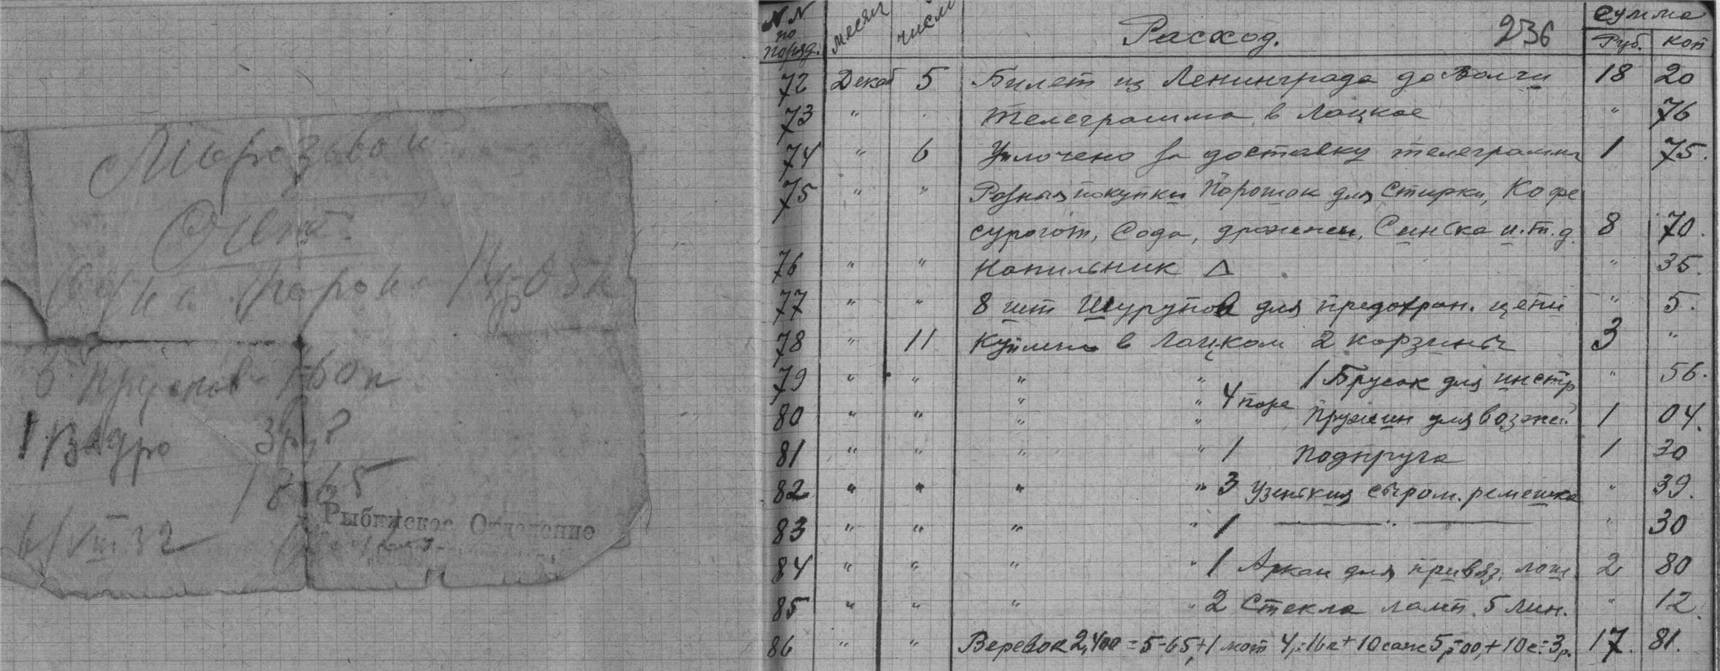 Морозовой
Счет.
5 Крюков 1-60к
1 Ведро 3 руб
18 65
Рыбинское Отделение
6/VIII 32
236
№№ по поряд. месяц число Расход. Сумма
Руб. Коп
72 Декаб 5 Билет из Ленинграда до Волги 18 20
73 " " Телеграмма в Лацкое " 76
74 " 6 Уплочено за доставку телеграмм 1 75.
75 " " Разныя покупки Порошок для Стирки, Кофе
сурогат, Сода, дрожжи, Синька и.т.д. 8 70.
76 " " Напильник Δ " 35.
77 " " 8 шт Шурупов для предохран. цепи " 5.
78 " 11 Куплено в Лацком 2 корзины 3 "
79 " " " " 1 Брусок для инстр " 56.
80 " " " " 4 пары Пружин для возжей 1 04.
81 " " " " 1 Подпруга 1 30
82 " " " " 3 Узеньких сыром. ремешка " 39.
83 " " " " 1 — " — " 30
84 " " " " 1 Аркан для привяз. лош. 2 80
85 " " " " 2 Стекла ламп. 5 лин. " 12
86 " " Веревок 2,400 = 5-65, + 1 мот 4,-16к + 10 саж 5,-00, + 10 с = 3р. 17. 81.